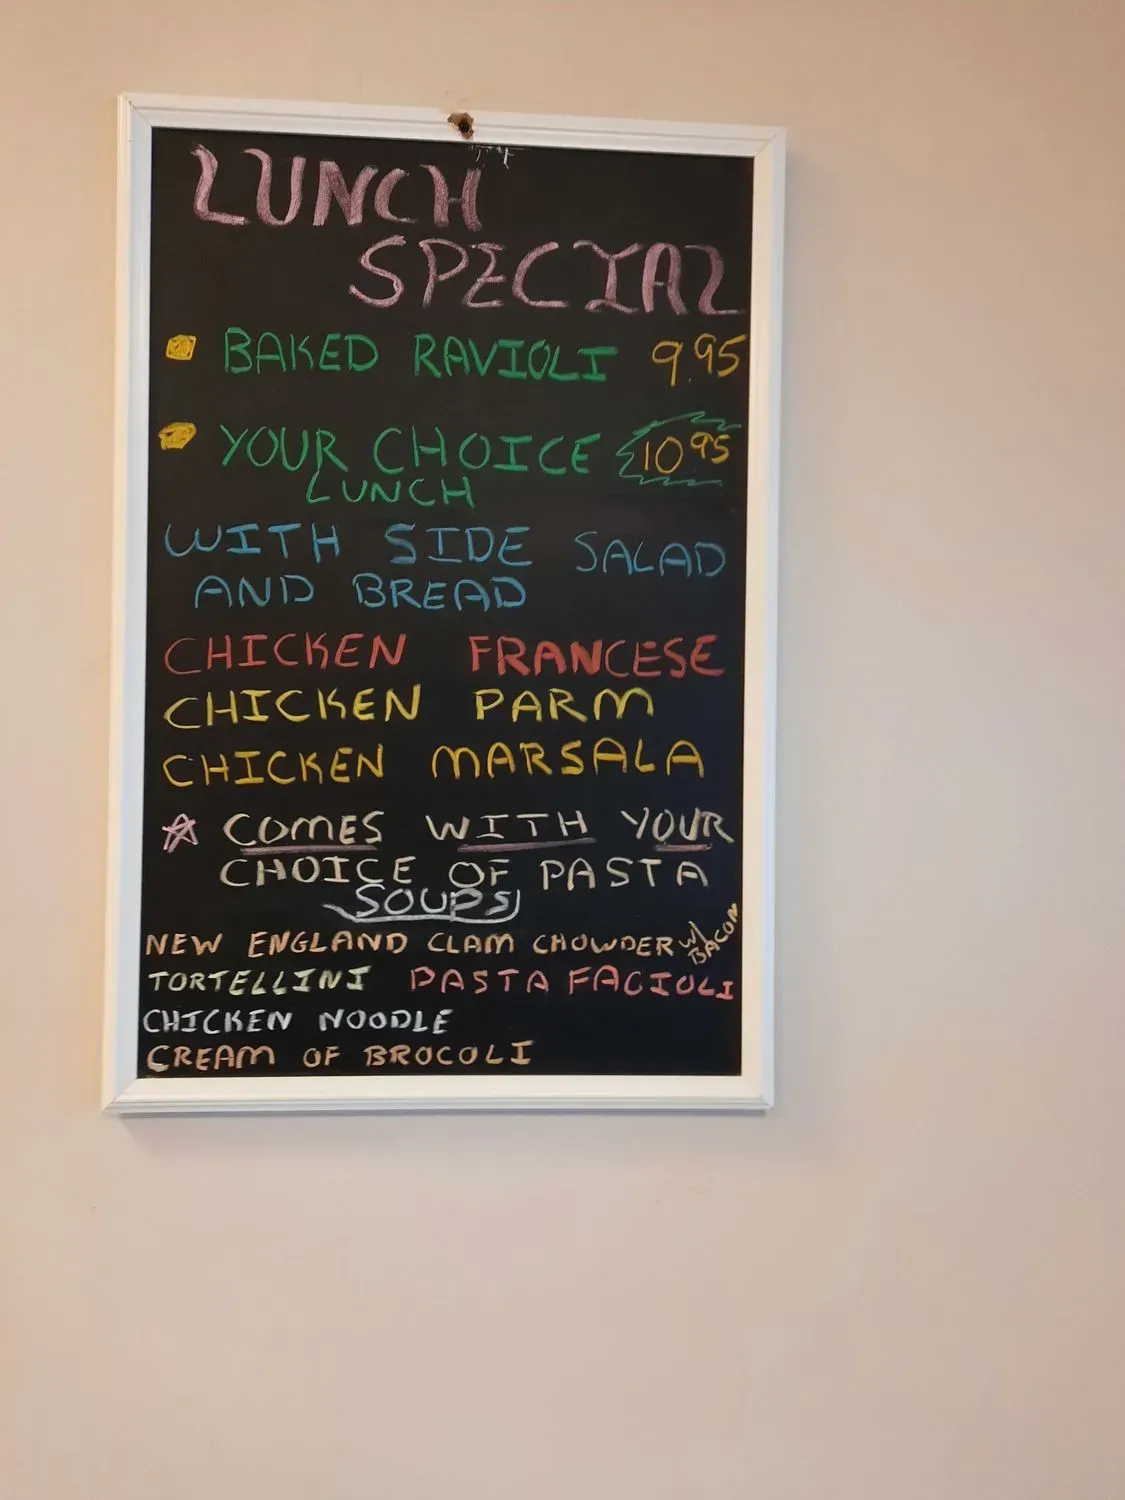 LUNCH
SPECIAL
BAKED RAVIOLI 9.95
YOUR CHOICE 10.95
LUNCH
WITH SIDE SALAD
AND BREAD
CHICKEN FRANCESE
CHICKEN PARM
CHICKEN MARSALA
☆ COMES WITH YOUR
CHOICE OF PASTA
SOUPS
NEW ENGLAND CLAM CHOWDER W/ BACON
TORTELLINI PASTA FAGIOLI
CHICKEN NOODLE
CREAM OF BROCOLI